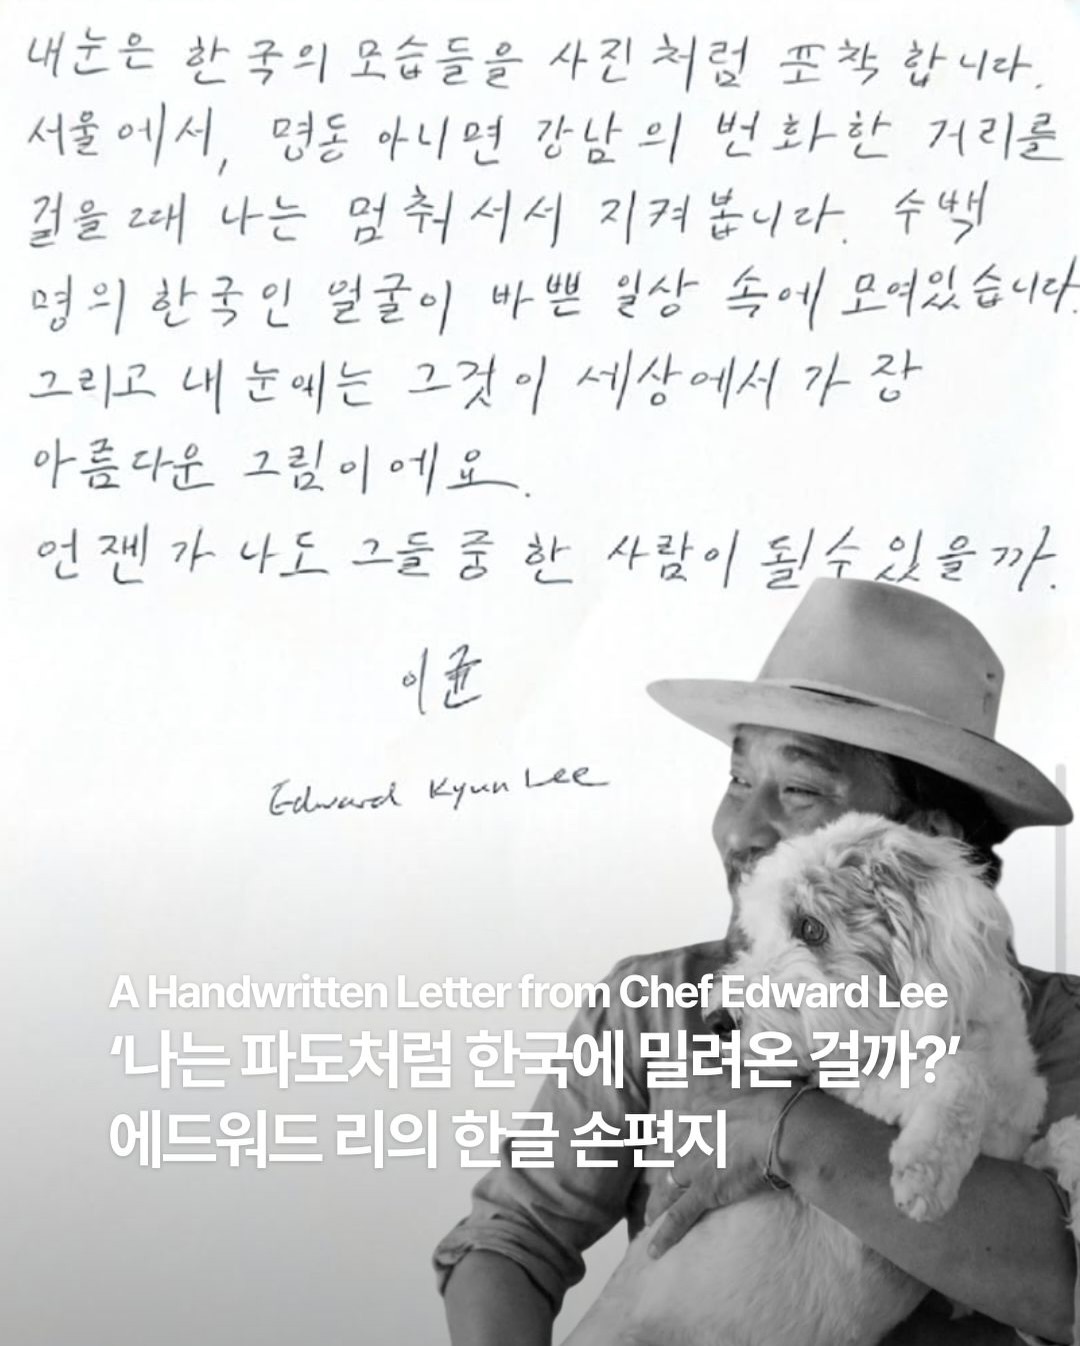 내 눈은 한국의 모습들을 사진처럼 포착합니다.
서울에서, 명동 아니면 강남의 번화한 거리를
걸을 때 나는 멈춰서서 지켜봅니다. 수백
명의 한국인 얼굴이 바쁜 일상 속에 모여있습니다.
그리고 내 눈에는 그것이 세상에서 가장
아름다운 그림이에요.
언젠가 나도 그들 중 한 사람이 될 수 있을까.
이균
Edward Kyun Lee
A Handwritten Letter from Chef Edward Lee
‘나는 파도처럼 한국에 밀려온 걸까?’
에드워드 리의 한글 손편지